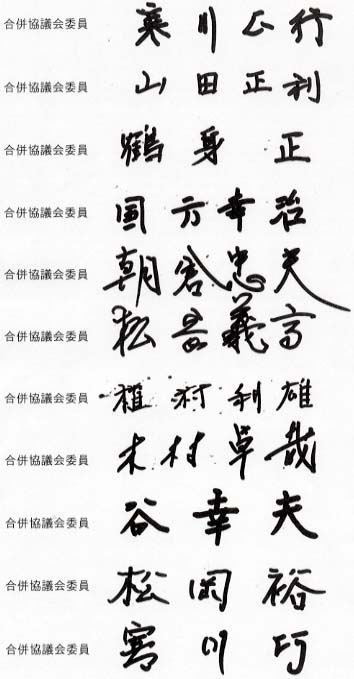 合併協議会委員 寒川広行
合併協議会委員 山田正利
合併協議会委員 鶴身正
合併協議会委員 国方幸治
合併協議会委員 朝倉忠夫
合併協議会委員 松岡義高
合併協議会委員 植村利雄
合併協議会委員 木村卓哉
合併協議会委員 谷幸夫
合併協議会委員 松岡裕
合併協議会委員 寒川巧